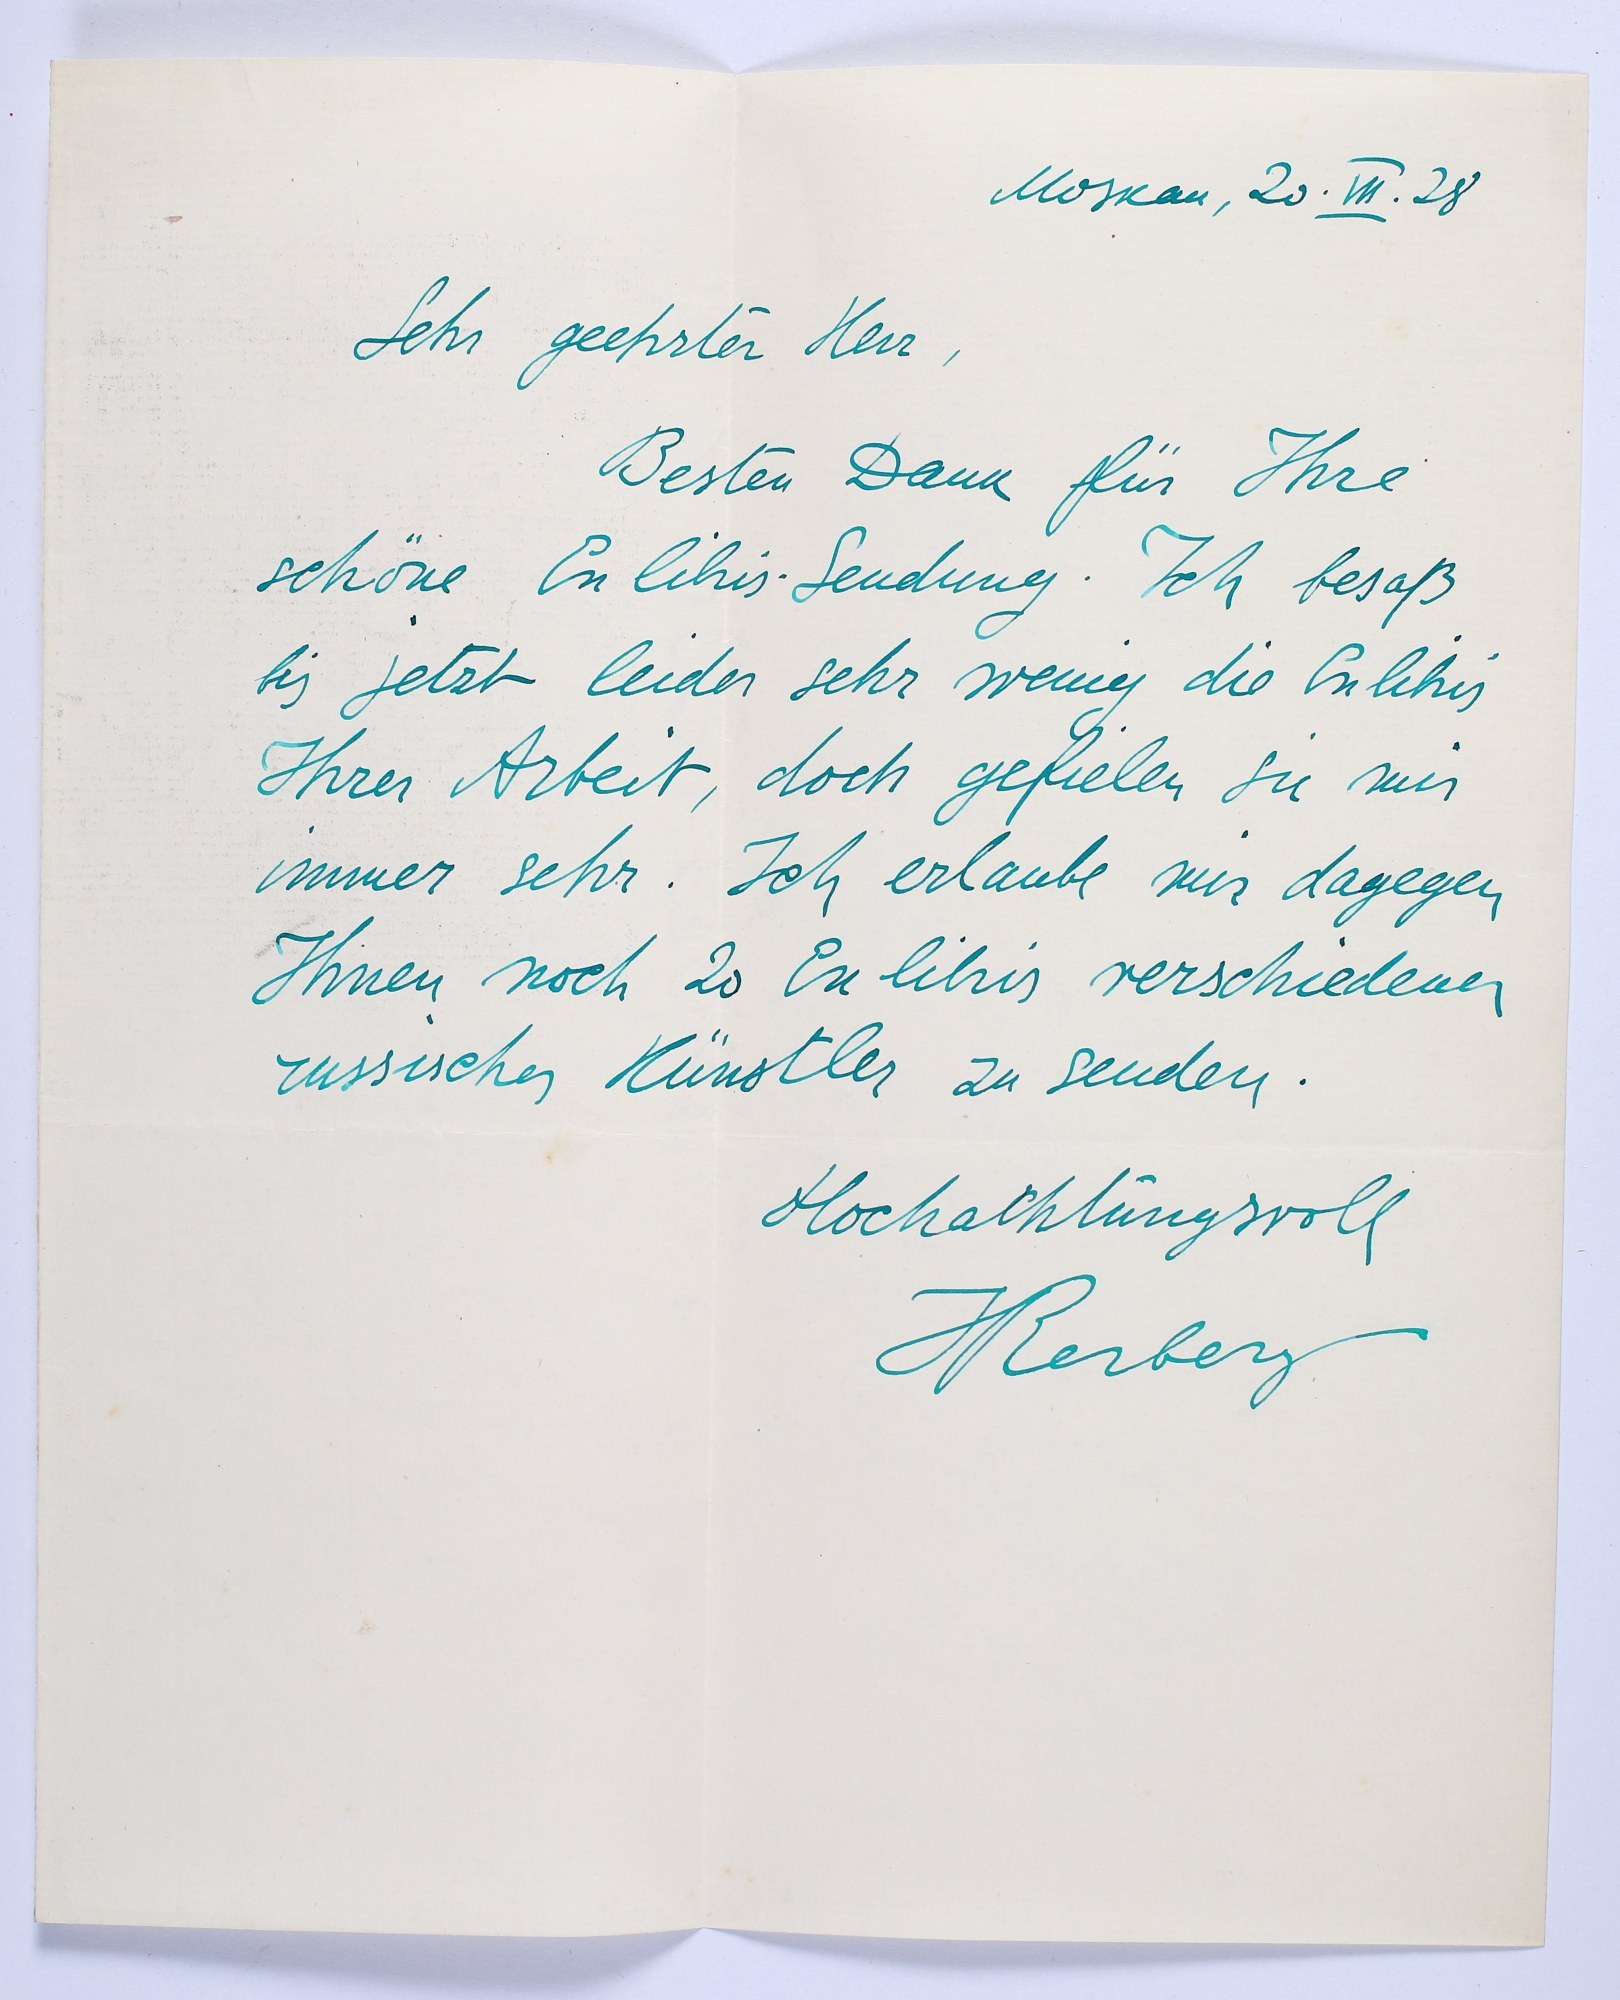 Moskau, 20. VII. 28
Sehr geehrter Herr,
Besten Dank für Ihre
schöne Exlibris-Sendung. Ich besaß
bis jetzt leider sehr wenig die Exlibris
Ihrer Arbeit, doch gefielen sie mir
immer sehr. Ich erlaube mir dagegen
Ihnen noch 20 Exlibris verschiedener
russischer Künstler zu senden.
Hochachtungsvoll